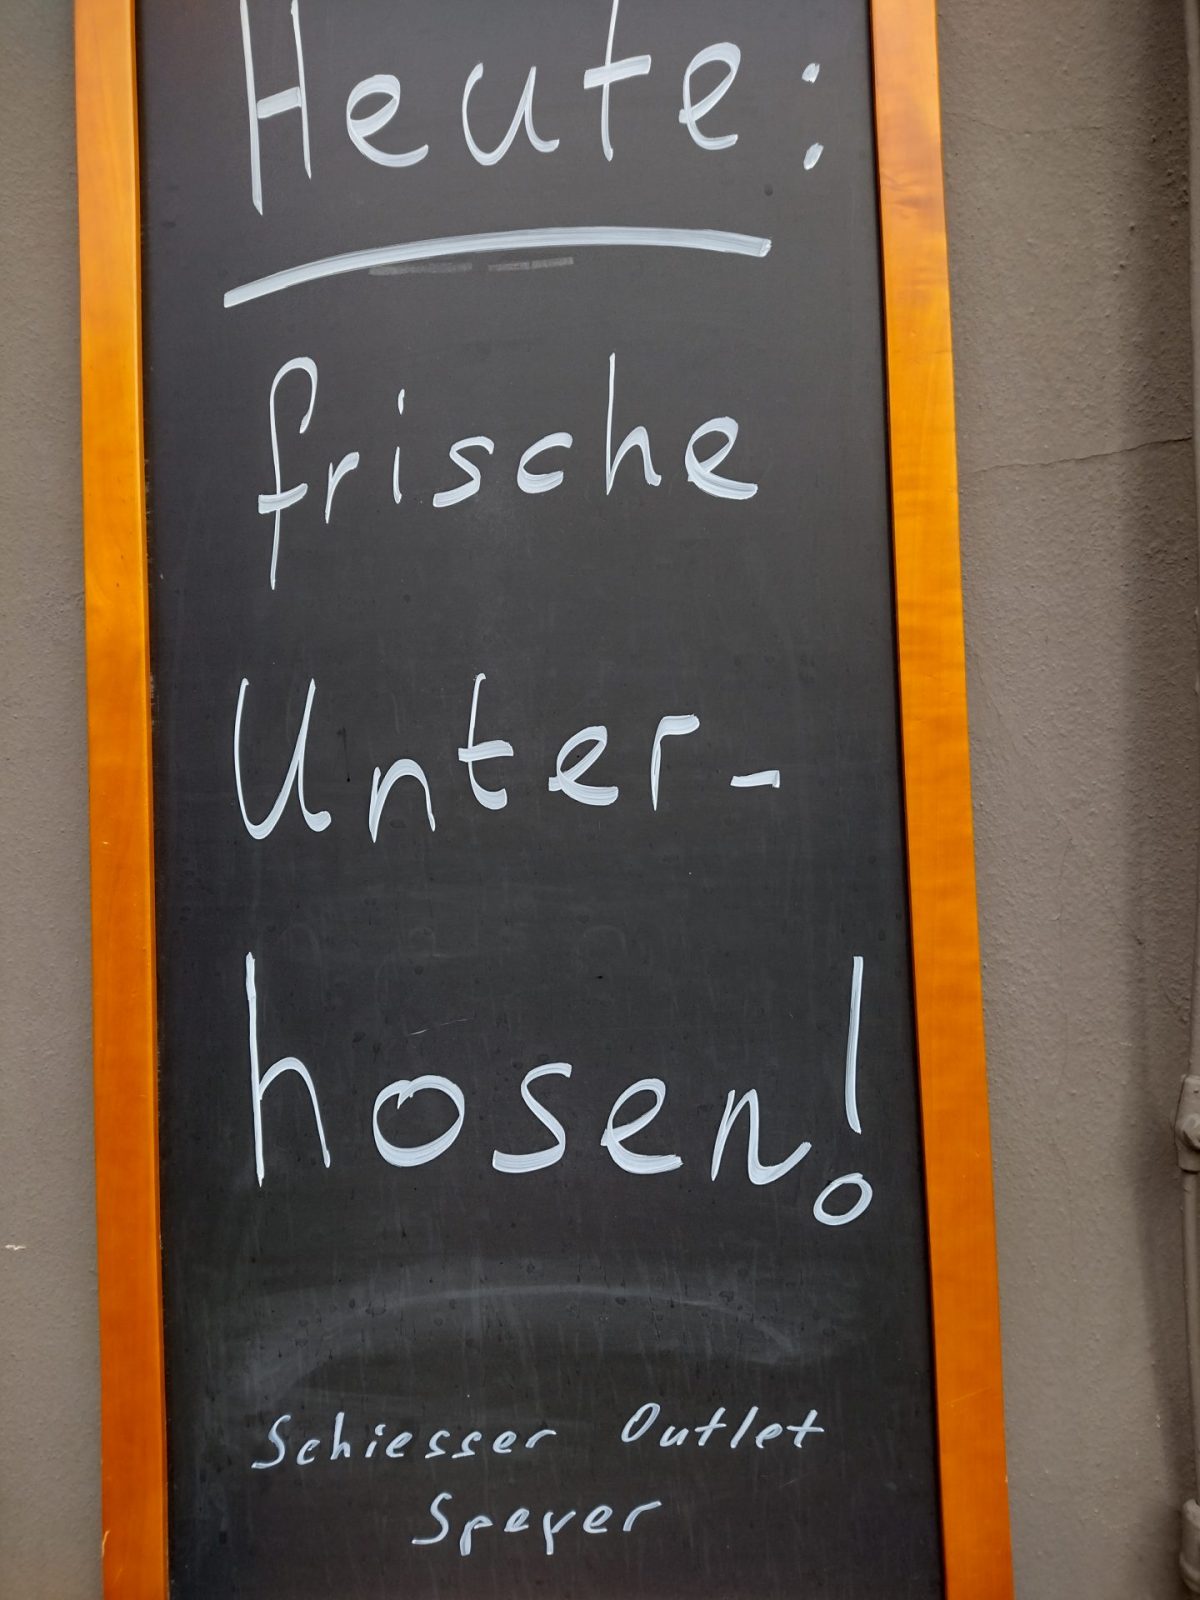 Heute:
frische
Unter-
hosen!
Schiesser Outlet
Speyer